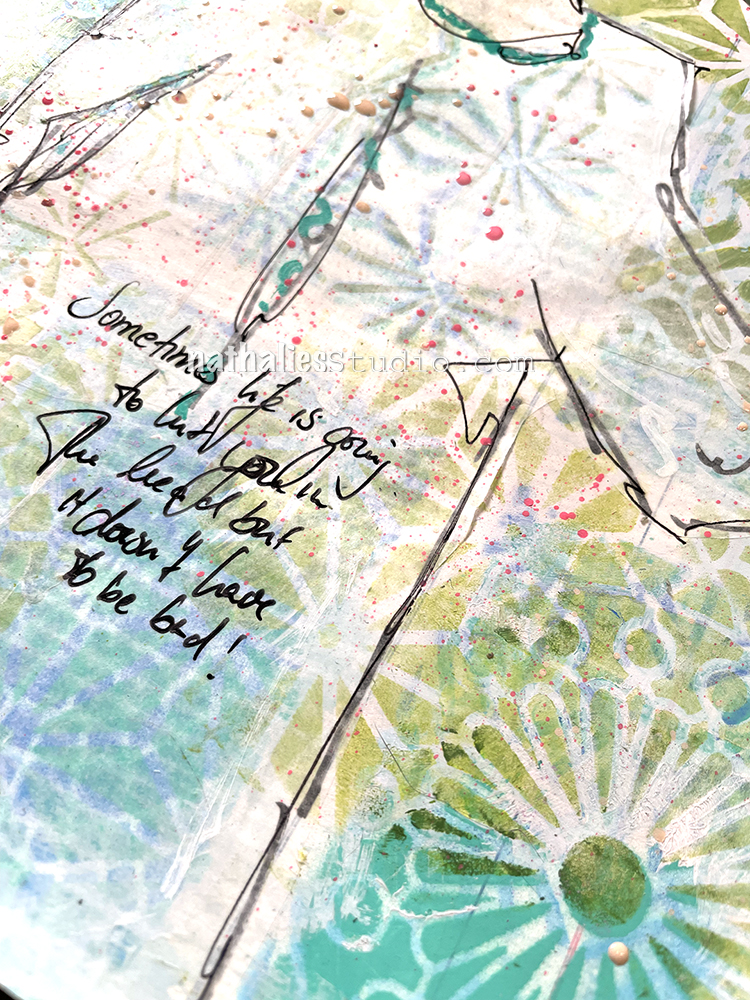 Sometimes life is going
nathaliesstudio.com
to hit you in
The head but
it doesn't have
to be bad!